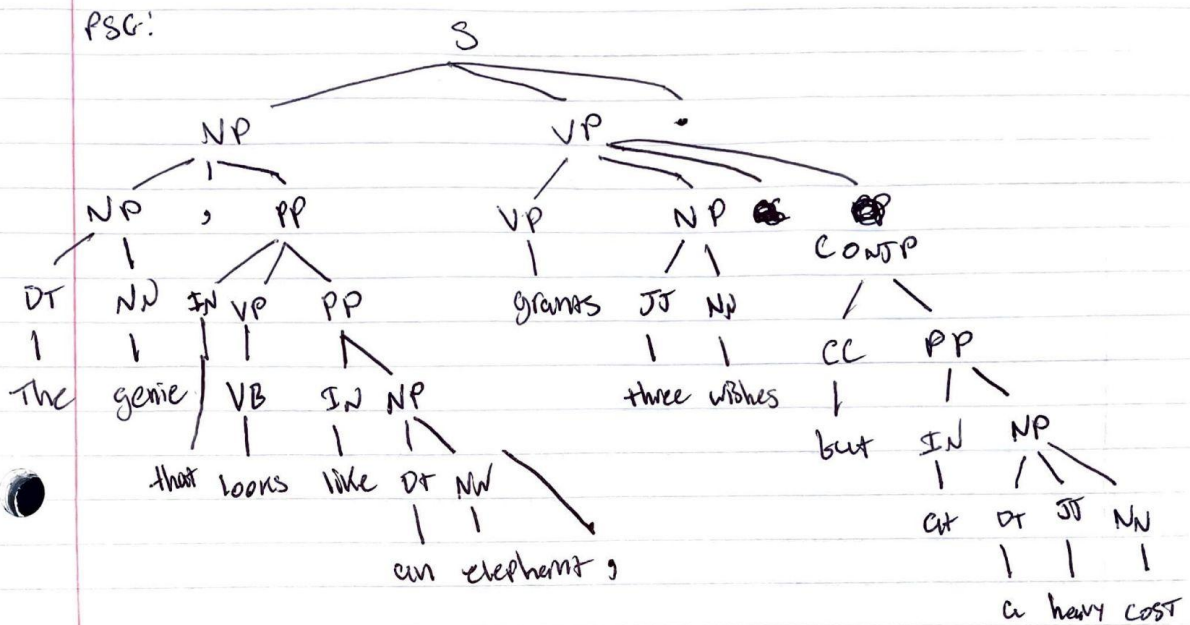 PSG:
S
NP VP .
NP , PP VP NP CONJP
DT NN IN VP PP grants JJ NN CC PP
The genie VB IN NP three wishes but IN NP
that looks like DT NN at DT JJ NN
an elephant , a heavy cost